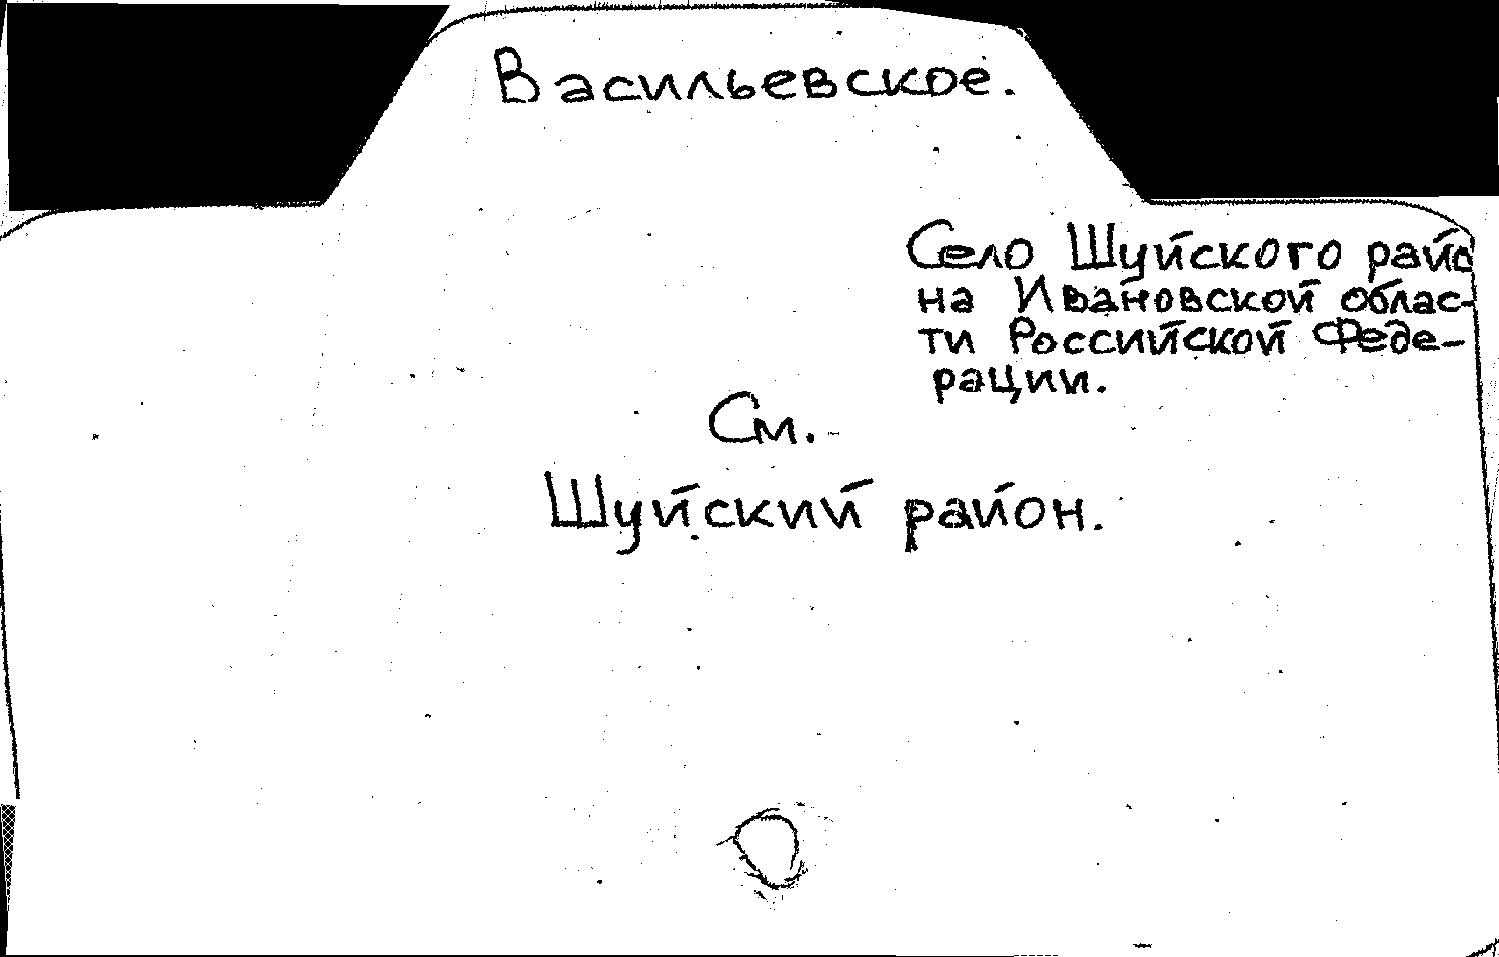 Васильевское.
Село Шуйского райо
на Ивановской облас-
ти Российской Феде-
рации.
См.
Шуйский район.